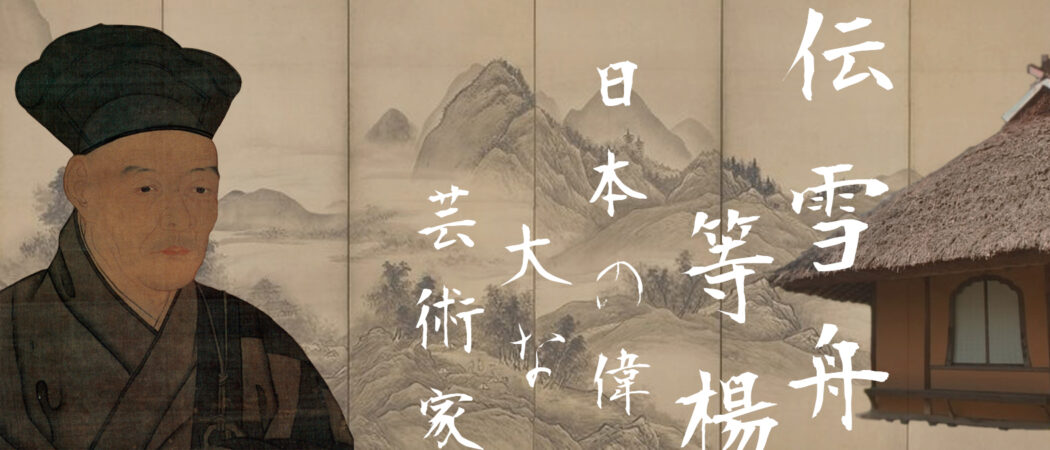 伝雪舟
等楊
日本の偉
大な
芸術家